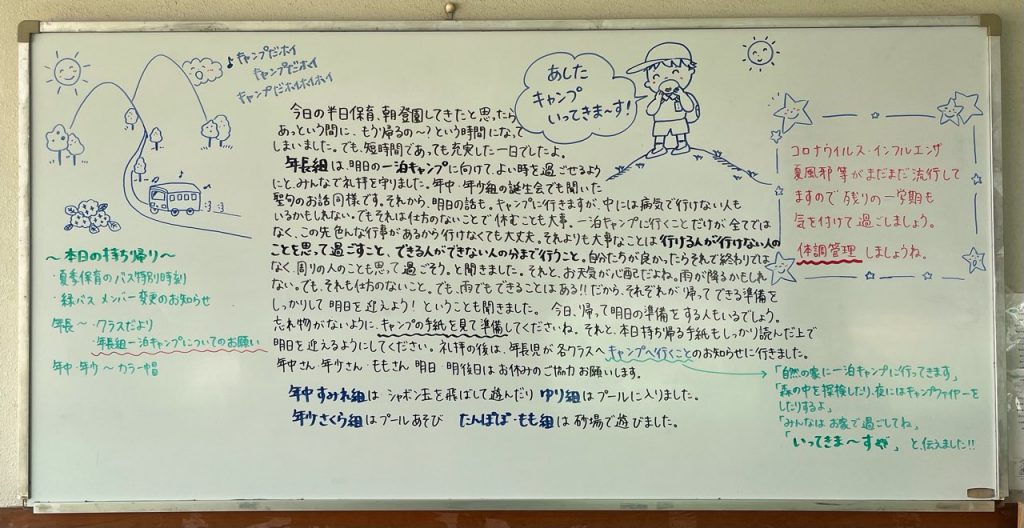 ♪キャンプだホイ
キャンプだホイ
キャンプだホイホイホイ
あした
キャンプ
いってきま〜す!
今日の半日保育、朝登園してきたと思ったら
あっという間に、もう帰るの〜?という時間になって
しまいました。でも、短時間であっても充実した一日でしたよ。
年長組は、明日の一泊キャンプに向けて、よい時を過ごせるよう
にと、みんなで礼拝を守りました。年中・年少組の誕生会でも聞いた
聖句のお話と同様です。それから、明日の話も。キャンプに行きますが、中には病気で行けない人も
いるかもしれない。でもそれは仕方のないことで休むことも大事。一泊キャンプに行くことだけが全てでは
なく、この先色んな行事があるから行けなくても大丈夫。それよりも大事なことは行ける人が行けない人の
ことを思って過ごすこと、できる人ができない人の分まで行うこと。自分たちが良かったらそれで終わりでは
なく、周りの人のことも思って過ごそう。と聞きました。それと、お天気が心配だよね。雨が降るかもしれ
ない。でも、それも仕方のないこと。でも、雨でもできることはある!!だから、それぞれが帰ってできる準備を
しっかりして明日を迎えよう!ということも聞きました。今日、帰って明日の準備をする人もいるでしょう。
忘れ物がないように、キャンプの手紙を見て準備してくださいね。それと、本日持ち帰る手紙もしっかり読んだ上で
明日を迎えるようにしてください。礼拝の後は、年長児が各クラスへキャンプへ行くことのお知らせに行きました。
年中さん・年少さん・ももさん 明日・明後日はお休みのご協力お願いします。
年中すみれ組はシャボン玉を飛ばして遊んだり ゆり組はプールに入りました。
年少さくら組はプールあそび たんぽぽ・もも組は砂場で遊びました。
〜本日の持ち帰り〜
・夏季保育のバス特別時刻
・緑バス メンバー変更のお知らせ
年長〜・クラスだより
・年長組一泊キャンプについてのお願い
年中・年少〜カラー帽
コロナウイルス・インフルエンザ
夏風邪等がまだまだ流行して
ますので残りの一学期も
気を付けて過ごしましょう。
体調管理しましょうね。
「自然の家に一泊キャンプに行ってきます」
「森の中を探検したり、夜にはキャンプファイヤーを
したりするよ」
「みんなはお家で過ごしてね」
「いってきま〜す」と、伝えました!!